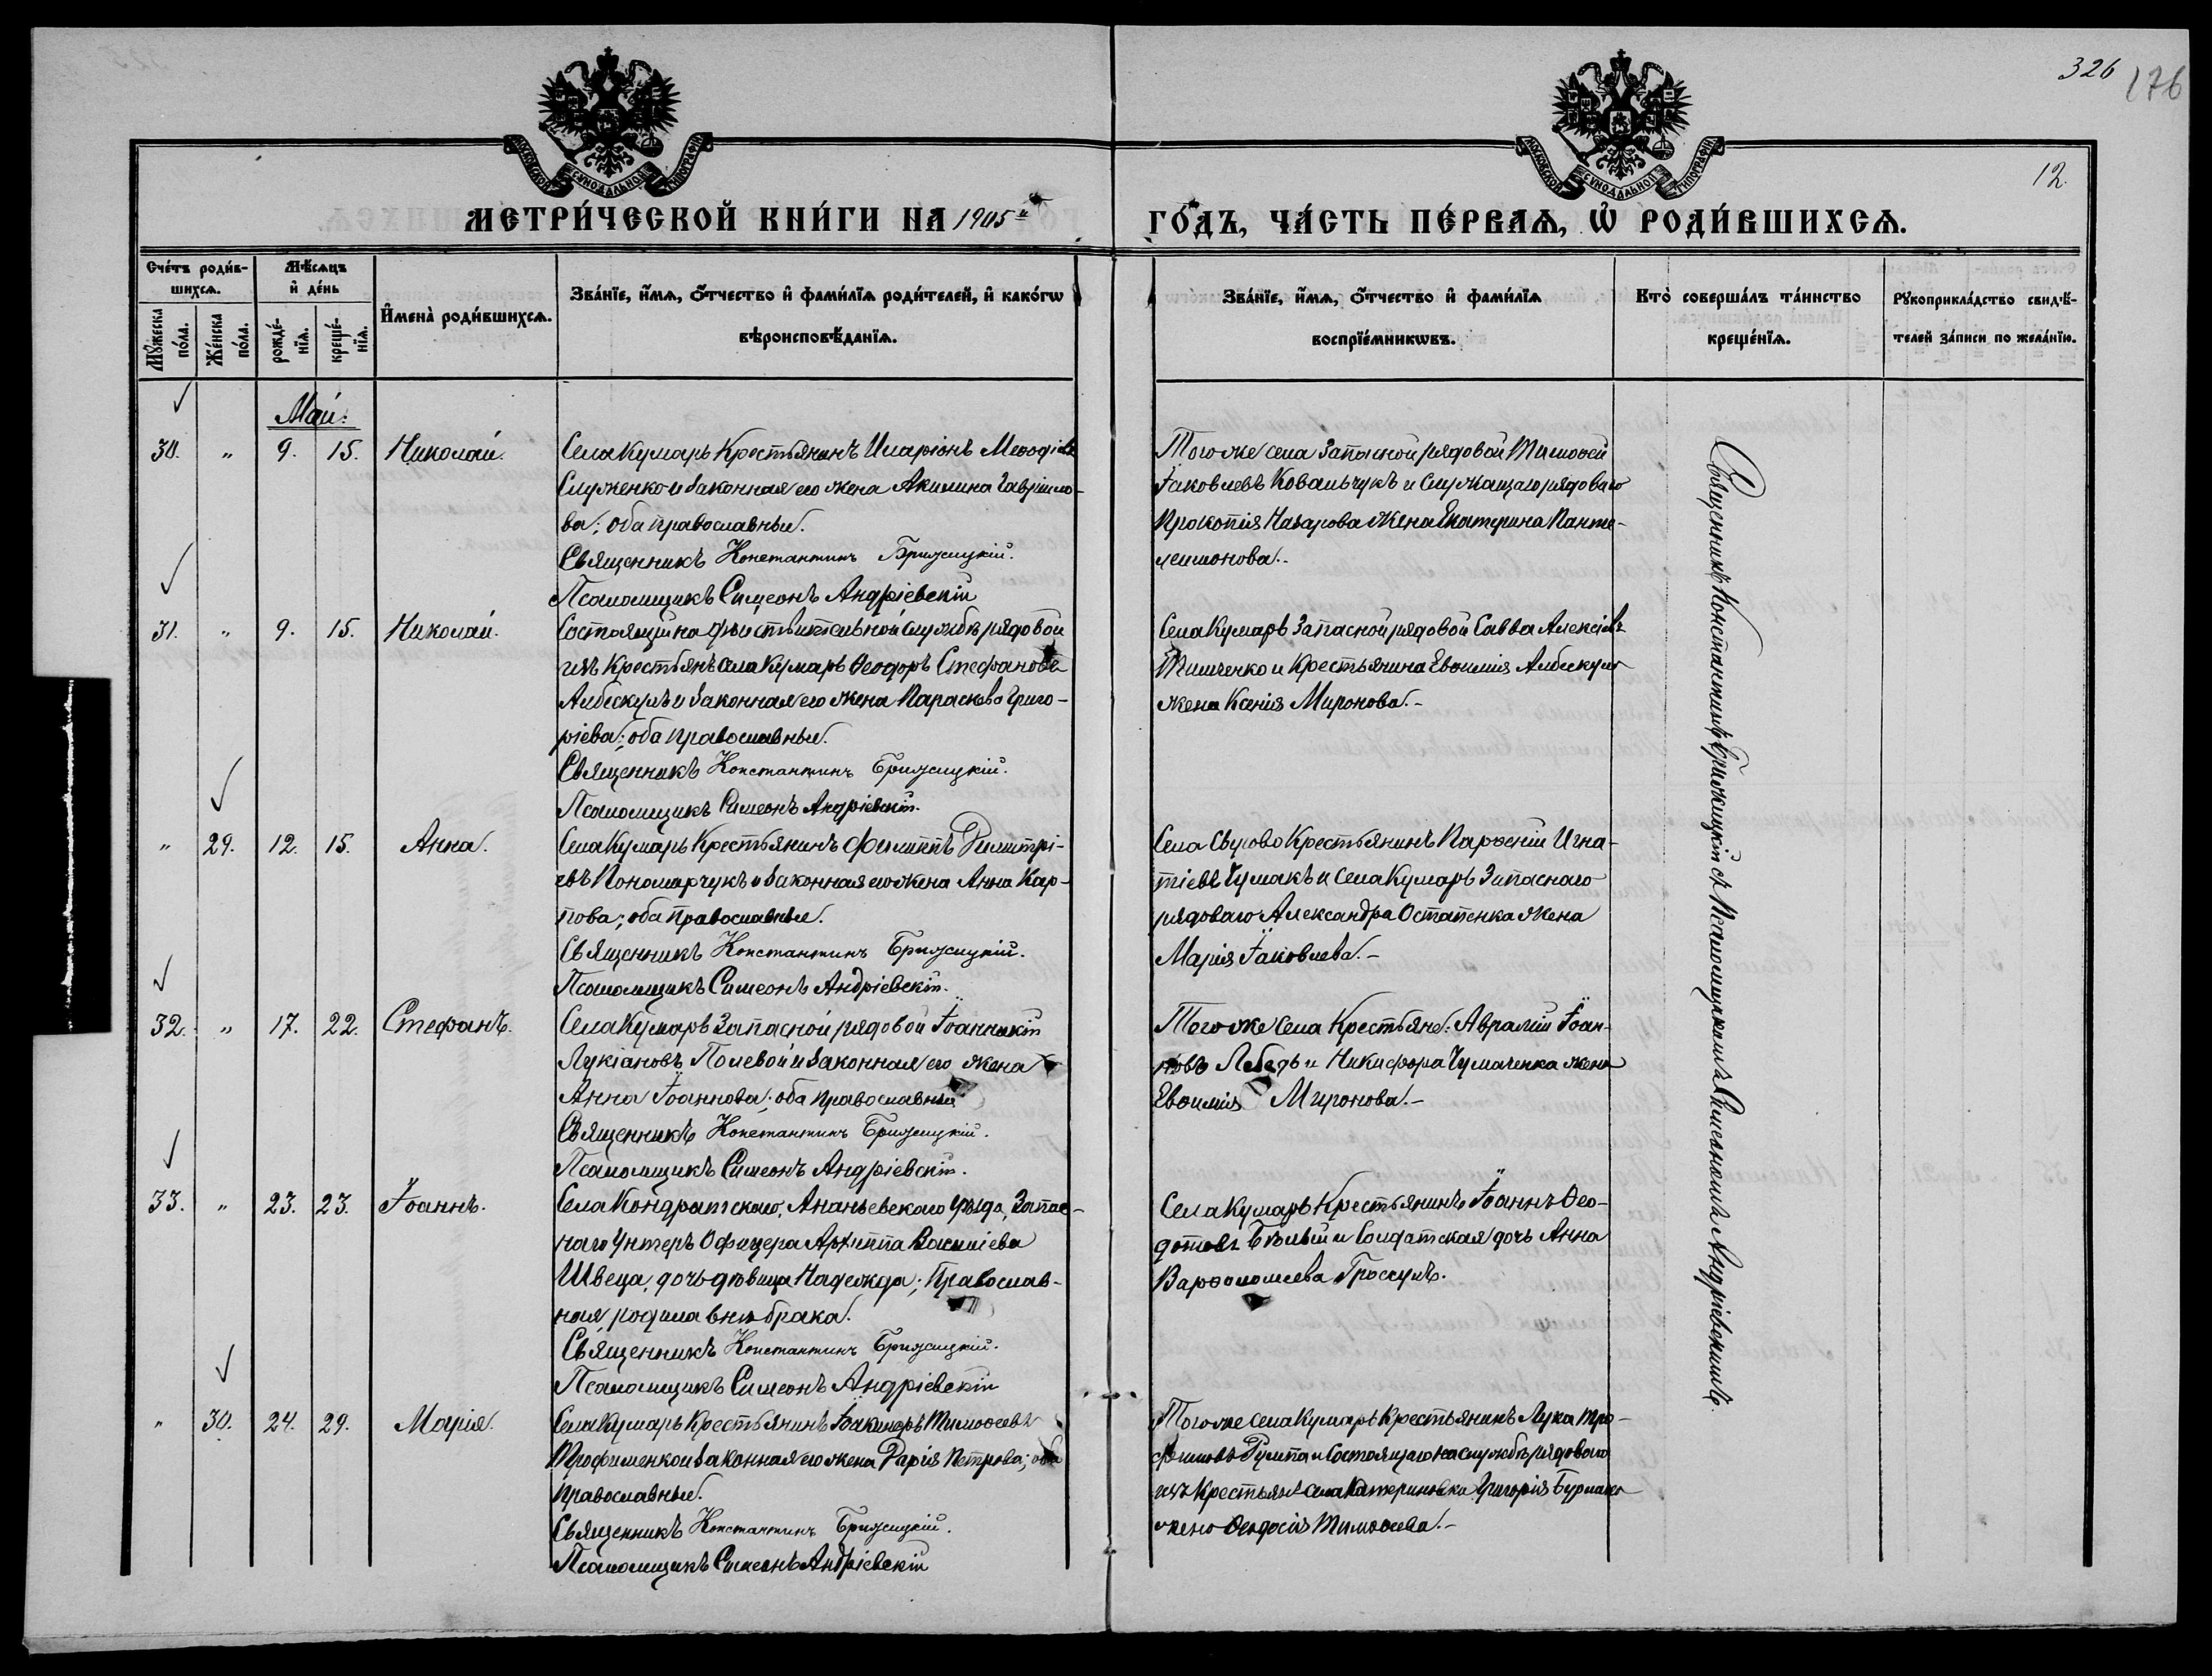 326
176
12.
МОСКОВСКОЙ СѴНОДАЛЬНОЙ ТИПОГРАФІИ
МОСКОВСКОЙ СѴНОДАЛЬНОЙ ТИПОГРАФІИ
МЕТРИ́ЧЕСКОЙ КНИ́ГИ НА 1905й ГО́ДЪ, ЧА́СТЬ ПЕ́РВАѦ, Ѡ҆ РОДИ́ВШИХСѦ.
Сче́тъ роди́в-
шихсѧ.
Мꙋ́жеска по́ла.
Же́нска по́ла.
Мѣ́сѧцъ
и҆ де́нь
рожде́-нїѧ.
креще́-нїѧ.
И҆мена̀ роди́вшихсѧ.
Зва́нїе, и҆́мѧ, ѻ҆́тчество и҆ фами́лїѧ роди́телей, и҆ како́гѡ
вѣроисповѣ́данїѧ.
Зва́нїе, и҆́мѧ, ѻ҆́тчество и҆ фами́лїѧ
воспрїе́мникѡвъ.
Кто̀ соверша́лъ та́инство
креще́нїѧ.
Рꙋкоприкла́дство свидѣ́-
телей за́писи по жела́нїю.
Май.
30. " 9. 15. Николай.
Села Кумарь Крестьянинъ Иларіонъ Меѳодіевъ
Служенко и законная его жена Акилина Гавріило-
ва; оба православные.
Священникъ Константинъ Брижицкій.
Псаломщикъ Симеонъ Андріевскій
Того же села запасной рядовой Тимоѳей
Іаковлевъ Ковальчукъ и служащаго рядоваго
Прокопія Назарова жена Екатерина Панте-
леимонова.-
31. " 9. 15. Николай.
Состоящій на дѣйствительной службѣ рядовой
изъ крестьянъ села Кумарь Ѳеодоръ Стефановъ
Албескулъ и законная его жена Параскева Григо-
ріева; оба православные.
Священникъ Константинъ Брижицкій.
Псаломщикъ Симеонъ Андріевскій.
Села Кумарь запасной рядовой Савва Алексіевъ
Тимченко и крестьянина Евѳимія Албескула
жена Ксенія Миронова.-
" 29. 12. 15. Анна.
Села Кумарь Крестьянинъ Филиппъ Димитрі-
евъ Пономарчукъ и законная его жена Анна Кар-
пова; оба православные.
Священникъ Константинъ Брижицкій.
Псаломщикъ Симеонъ Андріевскій.
Села Крестьянинъ Парѳеній Игна-
тіевъ Чумакъ и села Кумарь запаснаго
рядоваго Александра Остапенка жена
Марія Іаковлева.-
32. " 17. 22. Стефанъ.
Села Кумарь запасной рядовой Іоанникій
Лукіановъ Полевой и законная его жена
Анна Іоаннова; оба православные
Священникъ Константинъ Брижицкій.
Псаломщикъ Симеонъ Андріевскій.
Того же села Крестьяне: Аврамій Іоан-
новъ Лебедь и Никифора Чумаченка жена
Евѳимія Миронова.-
33. " 23. 23. Іоаннъ.
Села Кондратскаго, Ананьевскаго уѣзда, запас-
наго унтеръ офицера Архиппа Василіева
Швеца, дочь дѣвица Надежда; православ-
ная родила внѣ брака.
Священникъ Константинъ Брижицкій.
Псаломщикъ Симеонъ Андріевскій
Села Кумарь Крестьянинъ Іоаннъ Ѳео-
дотовъ Бѣлый и солдатская дочь Анна
Варѳоломеева Гроскулъ.
" 30. 24. 29. Марія.
Села Кумарь Крестьянинъ Іоакимъ Тимоѳеевъ
Трофименко и законная его жена Дарія Петрова; оба
православные.
Священникъ Константинъ Брижицкій.
Псаломщикъ Симеонъ Андріевскій
Того же села Кумарь Крестьянинъ Лука Тро-
фимовъ и состоящаго на службѣ рядоваго
изъ крестьянъ села Катериновки Григорія
жена Ѳеодосія Тимоѳеева.-
Священникъ Константинъ Брижицкій съ Псаломщикомъ Симеономъ Андріевскимъ.